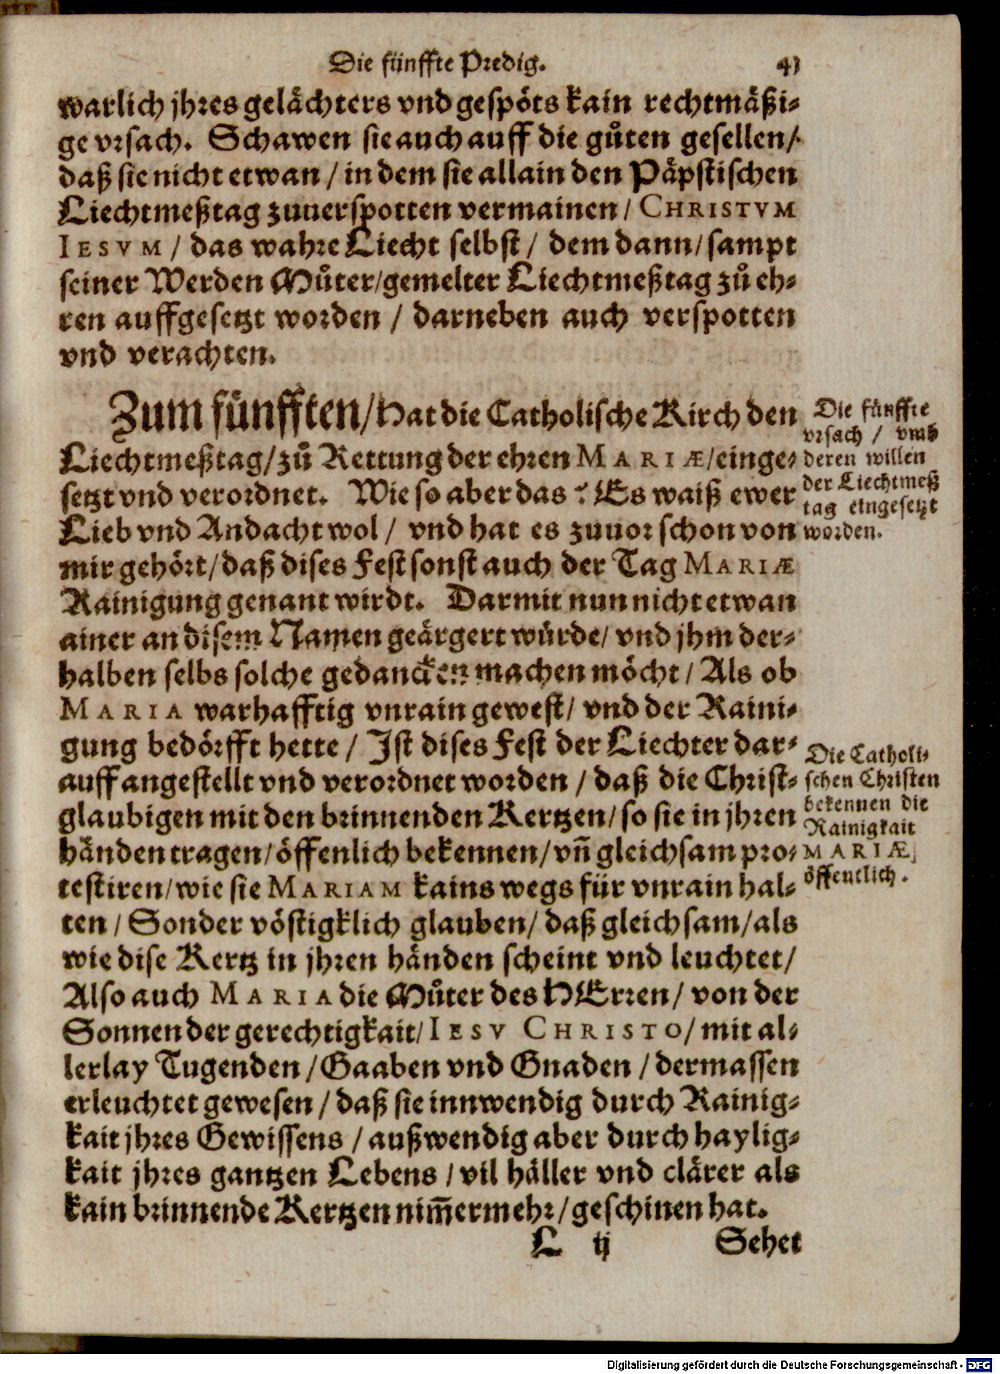 Die fünffte Predig. 41
warlich jhres gelächters vnd gespöts kain rechtmäßi-
ge vrsach. Schawen sie auch auff die gůten gesellen/
daß sie nicht etwan / in dem sie allain den Päpstischen
Liechtmeßtag zuuerspotten vermainen / CHRISTVM
IESVM / das wahre Liecht selbst / dem dann / sampt
seiner Werden Můter / gemelter Liechtmeßtag zů eh-
ren auffgesetzt worden / darneben auch verspotten
vnd verachten.
Zum fünfften / Hat die Catholische Kirch den
Liechtmeßtag / zů Rettung der ehren MARIÆ / einge-
setzt vnd verordnet. Wie so aber das ? Es waiß ewer
Lieb vnd Andacht wol / vnd hat es zuuor schon von
mir gehört / daß dises Fest sonst auch der Tag MARIÆ
Rainigung genant wirdt. Darmit nun nicht etwan
ainer an disem Namen geärgert würde / vnd jhm der-
halben selbs solche gedancken machen möcht / Als ob
MARIA warhafftig vnrain gewest / vnd der Raini-
gung bedörfft hette / Ist dises Fest der Liechter dar-
auff angestellt vnd verordnet worden / daß die Christ-
glaubigen mit den brinnenden Kertzen / so sie in jhren
händen tragen / öffenlich bekennen / vñ gleichsam pro-
testiren / wie sie MARIAM kains wegs für vnrain hal-
ten / Sonder vöstigklich glauben / daß gleichsam / als
wie dise Kertz in jhren händen scheint vnd leuchtet /
Also auch MARIA die Můter des HErren / von der
Sonnen der gerechtigkait / IESV CHRISTO / mit al-
lerlay Tugenden / Gaaben vnd Gnaden / dermassen
erleuchtet gewesen / daß sie innwendig durch Rainig-
kait jhres Gewissens / außwendig aber durch haylig-
kait jhres gantzen Lebens / vil häller vnd clärer als
kain brinnende Kertzen nim̃ermehr / geschinen hat.
L ij Sehet
Die fünffte
vrsach / vmb
deren willen
der Liechtmeß
tag eingesetzt
worden.
Die Catholi-
schen Christen
bekennen die
Rainigkait
MARIÆ
öffentlich.
Digitalisierung gefördert durch die Deutsche Forschungsgemeinschaft - DFG